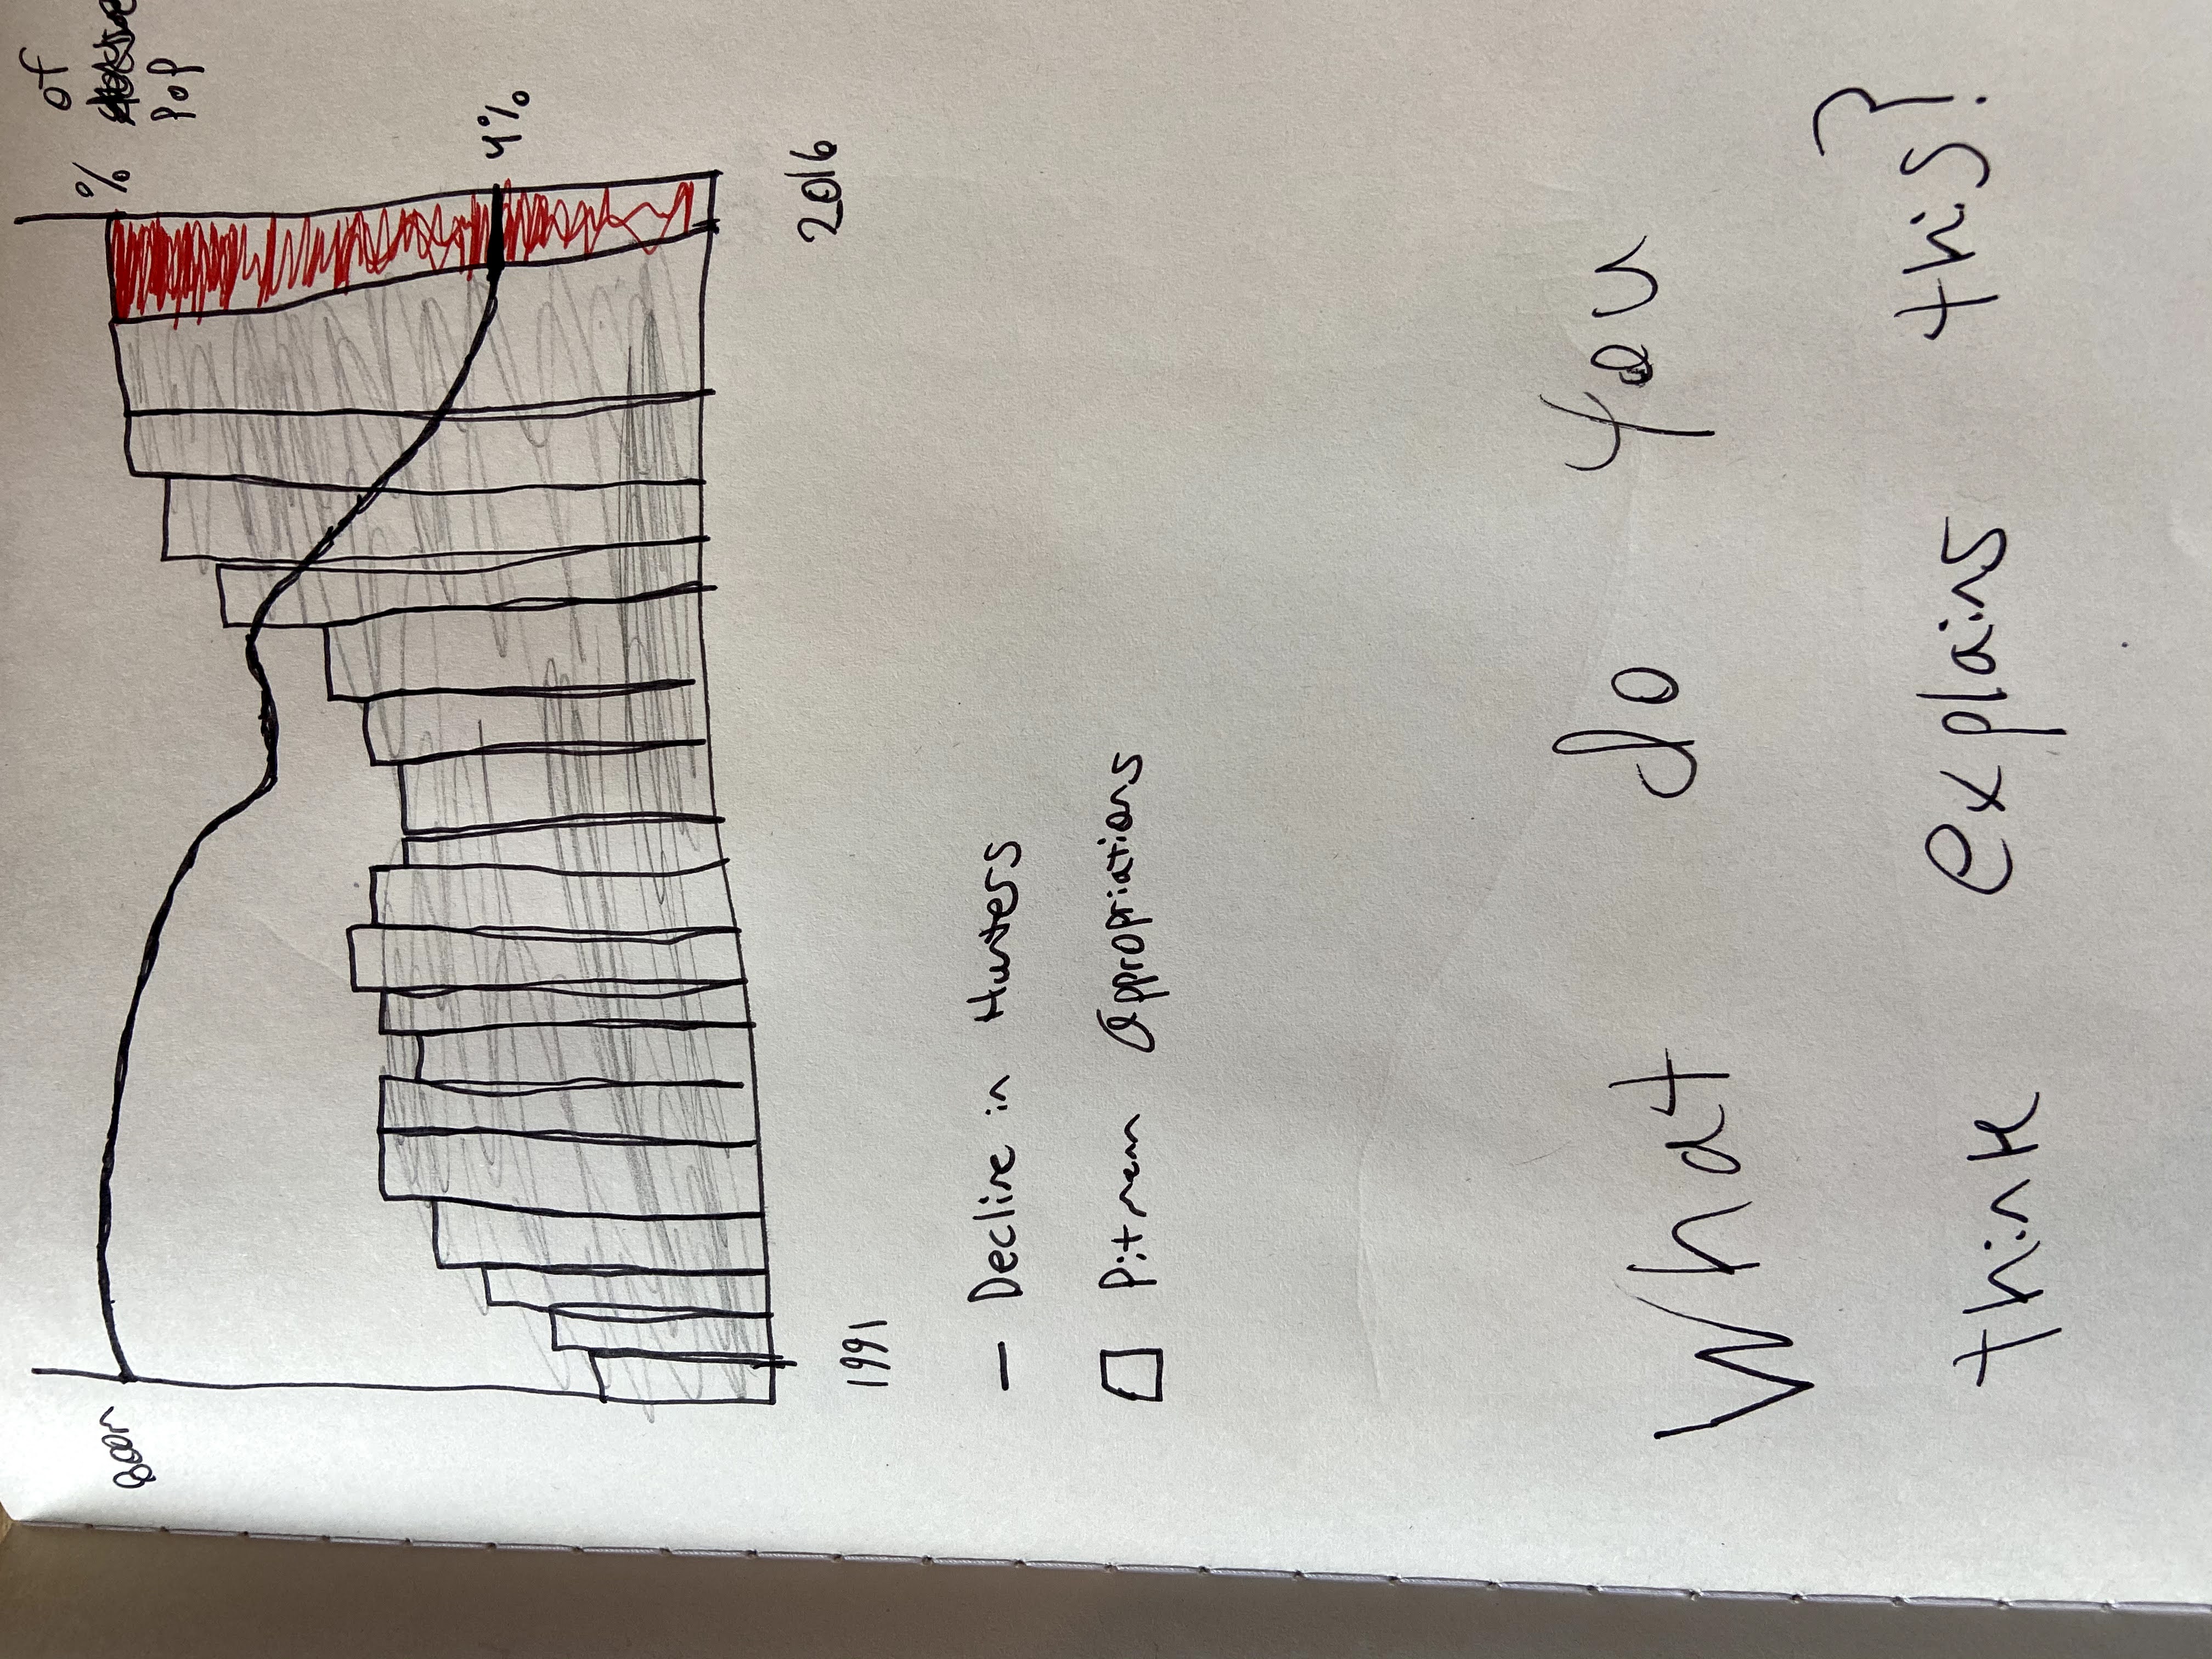 of
800m
%
Pop
4%
2016
1991
— Decline in Hunters
Pitmann Appropriations
What do You
think explains this?